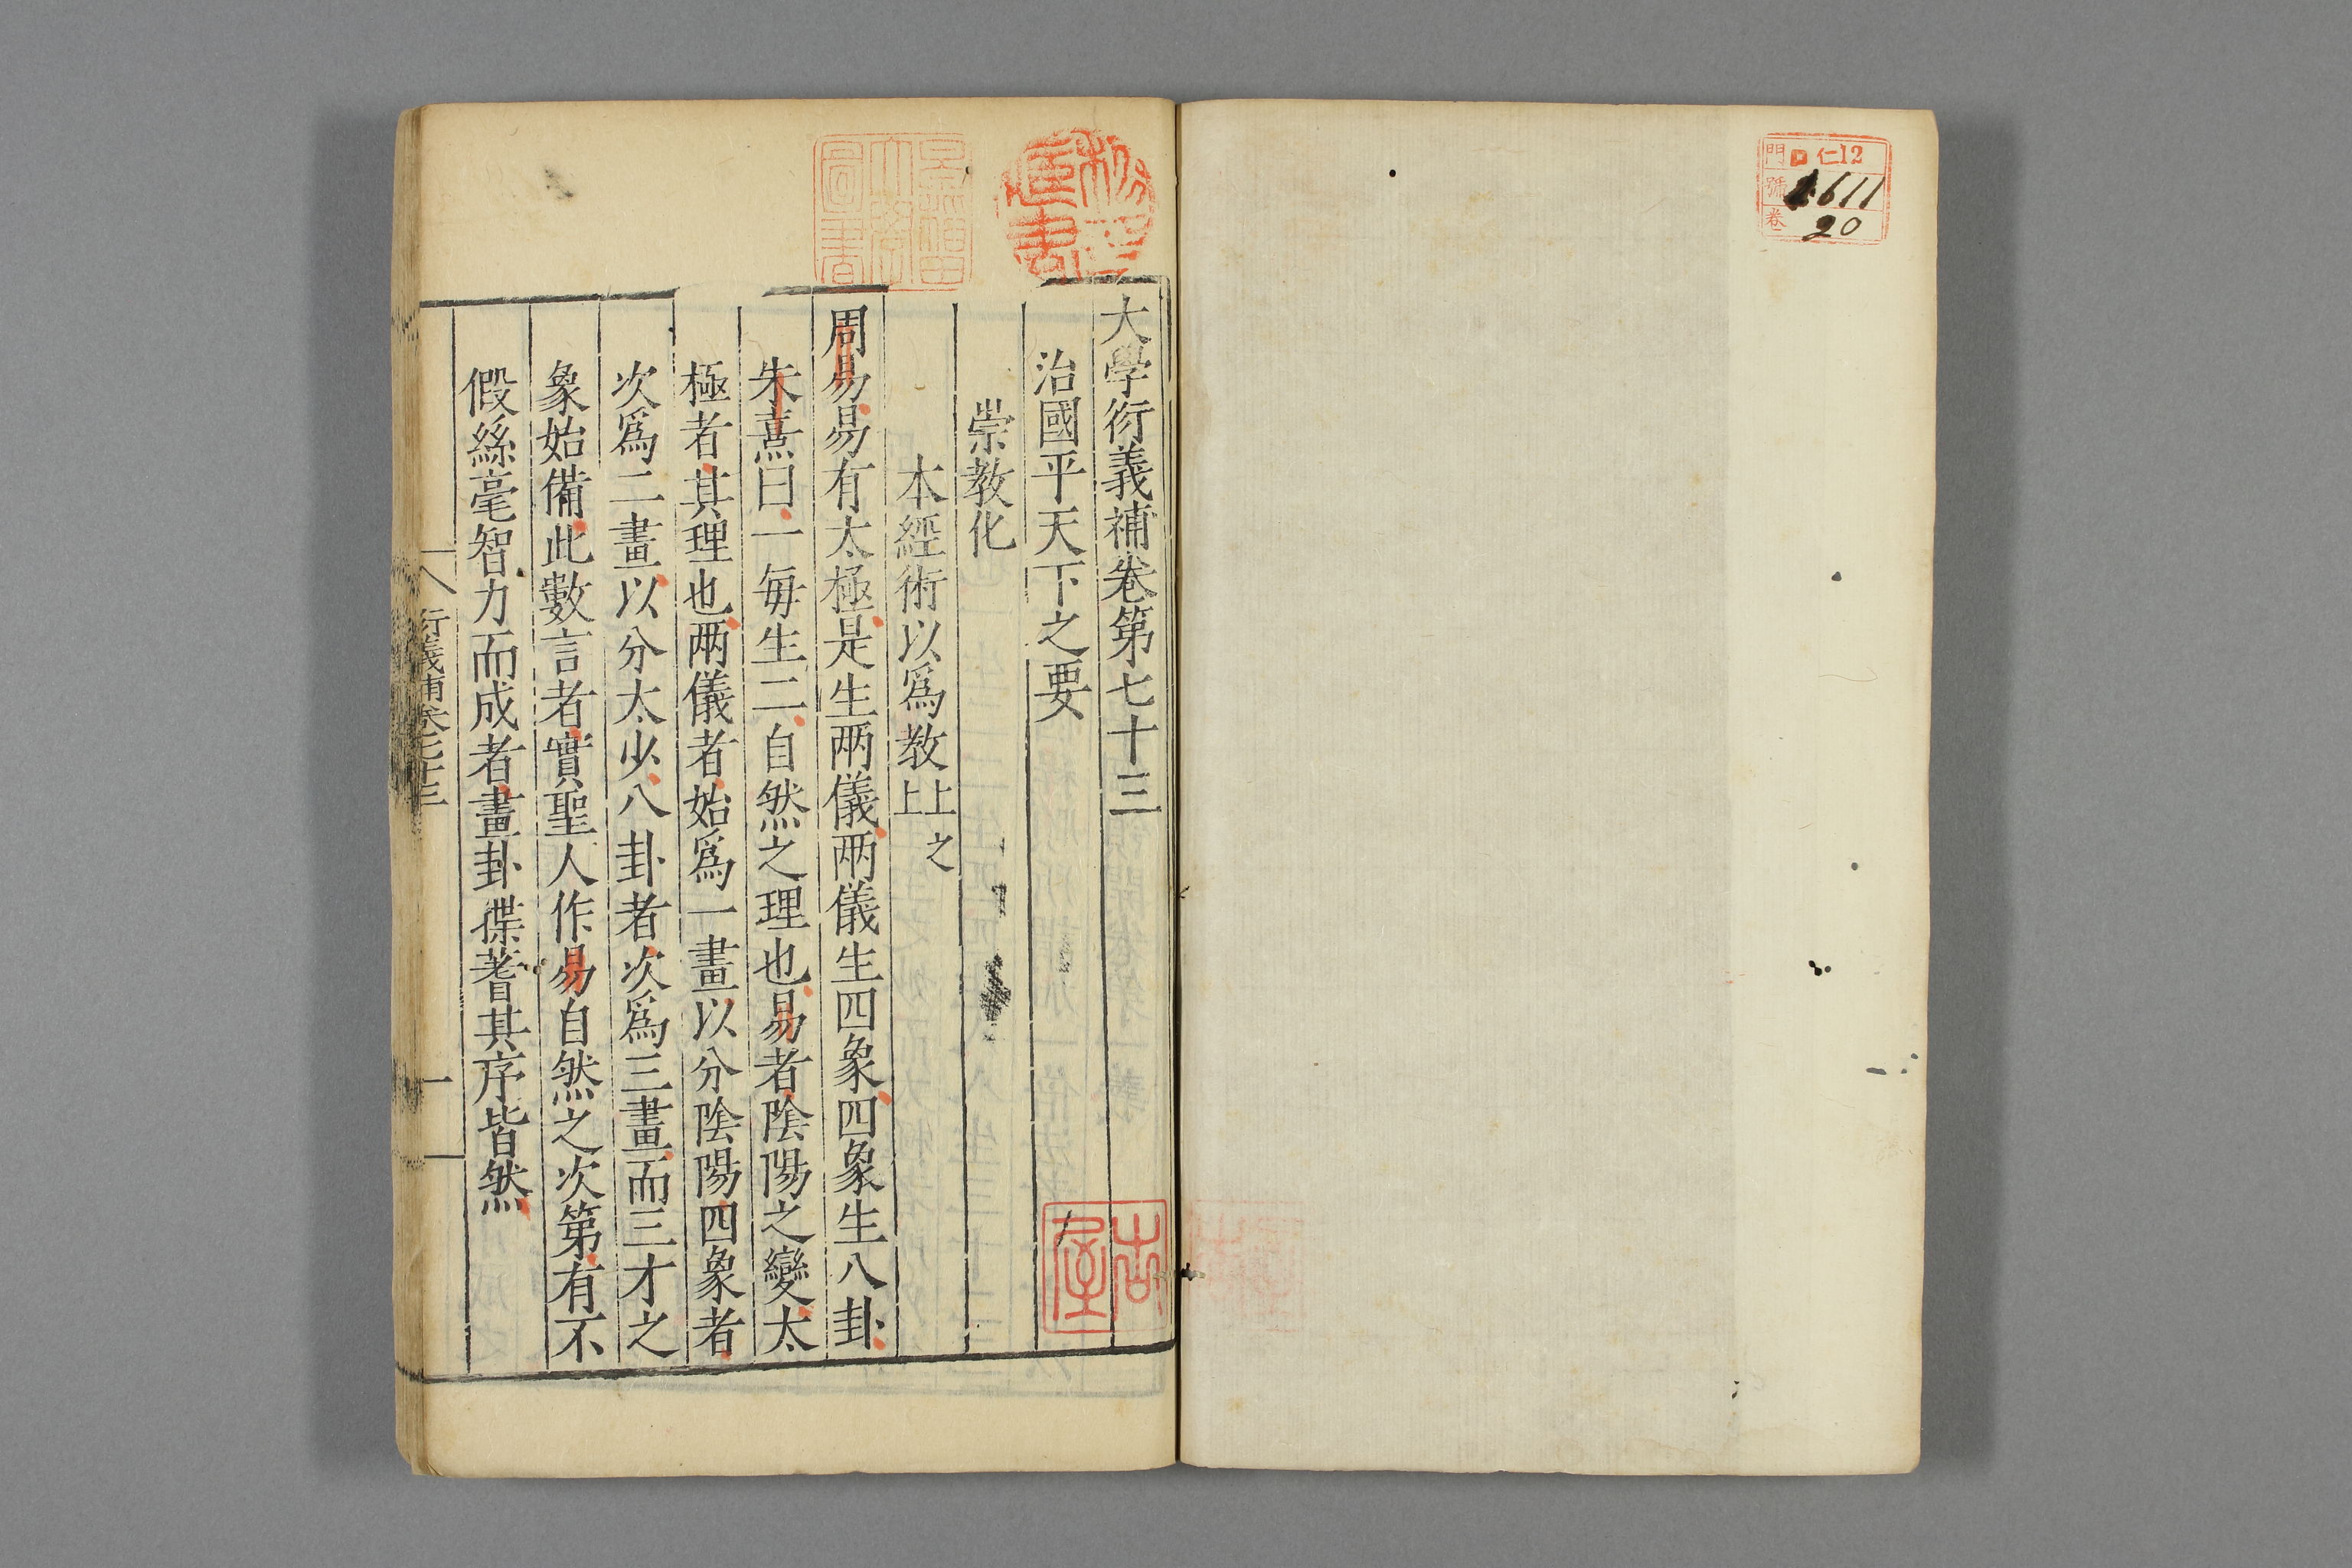 門 仁12
號 1611
卷 20
大學衍義補卷第七十三
治國平天下之要
崇教化
本經術以為教上之上
周易易有太極是生兩儀兩儀生四象四象生八卦
朱熹曰一每生二自然之理也易者陰陽之變太
極者其理也兩儀者始為一畫以分陰陽四象者
次為二畫以分太少八卦者次為三畫而三才之
象始備此數言者實聖人作易自然之次第有不
假絲毫智力而成者畫卦揲蓍其序皆然
衍義補卷七十三
一